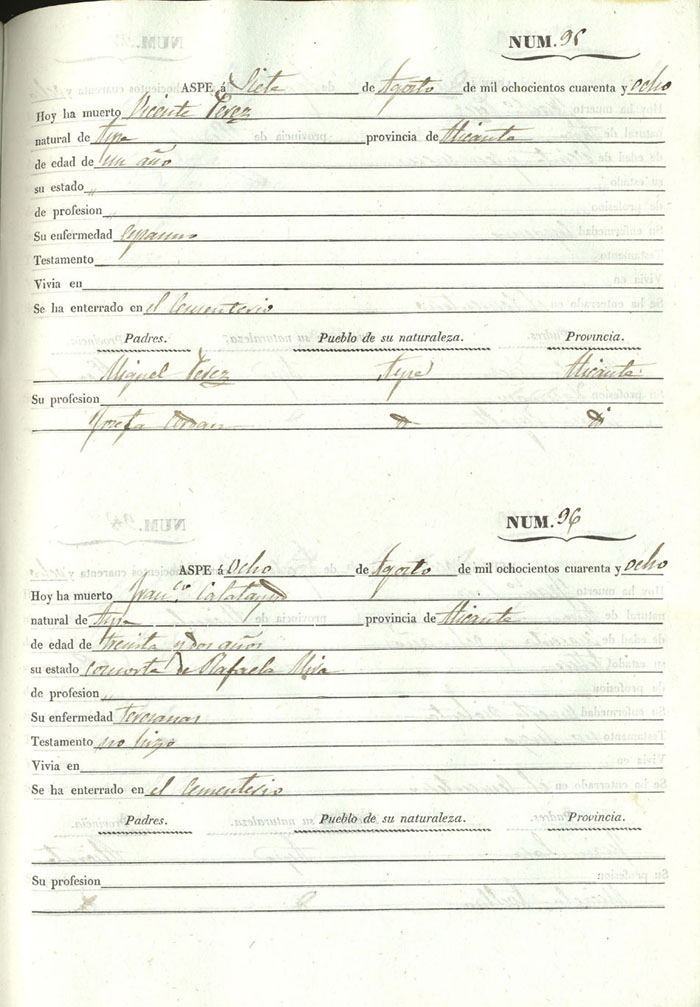 NUM. 95
ASPE á Siete de Agosto de mil ochocientos cuarenta y ocho
Hoy ha muerto Vicente Perez
natural de Aspe provincia de Alicante
de edad de un año
su estado „
de profesion „
Su enfermedad espasmo
Testamento
Vivia en
Se ha enterrado en el Cementerio
Padres. Pueblo de su naturaleza. Provincia.
Miguel Perez Aspe Alicante
Su profesion
Josefa
NUM. 96
ASPE á Ocho de Agosto de mil ochocientos cuarenta y ocho
Hoy ha muerto Franco Calatayud
natural de Aspe provincia de Alicante
de edad de treinta y dos años
su estado consorte de Rafaela
de profesion „
Su enfermedad Tercianas
Testamento no hizo
Vivia en
Se ha enterrado en el Cementerio
Padres. Pueblo de su naturaleza. Provincia.
Su profesion